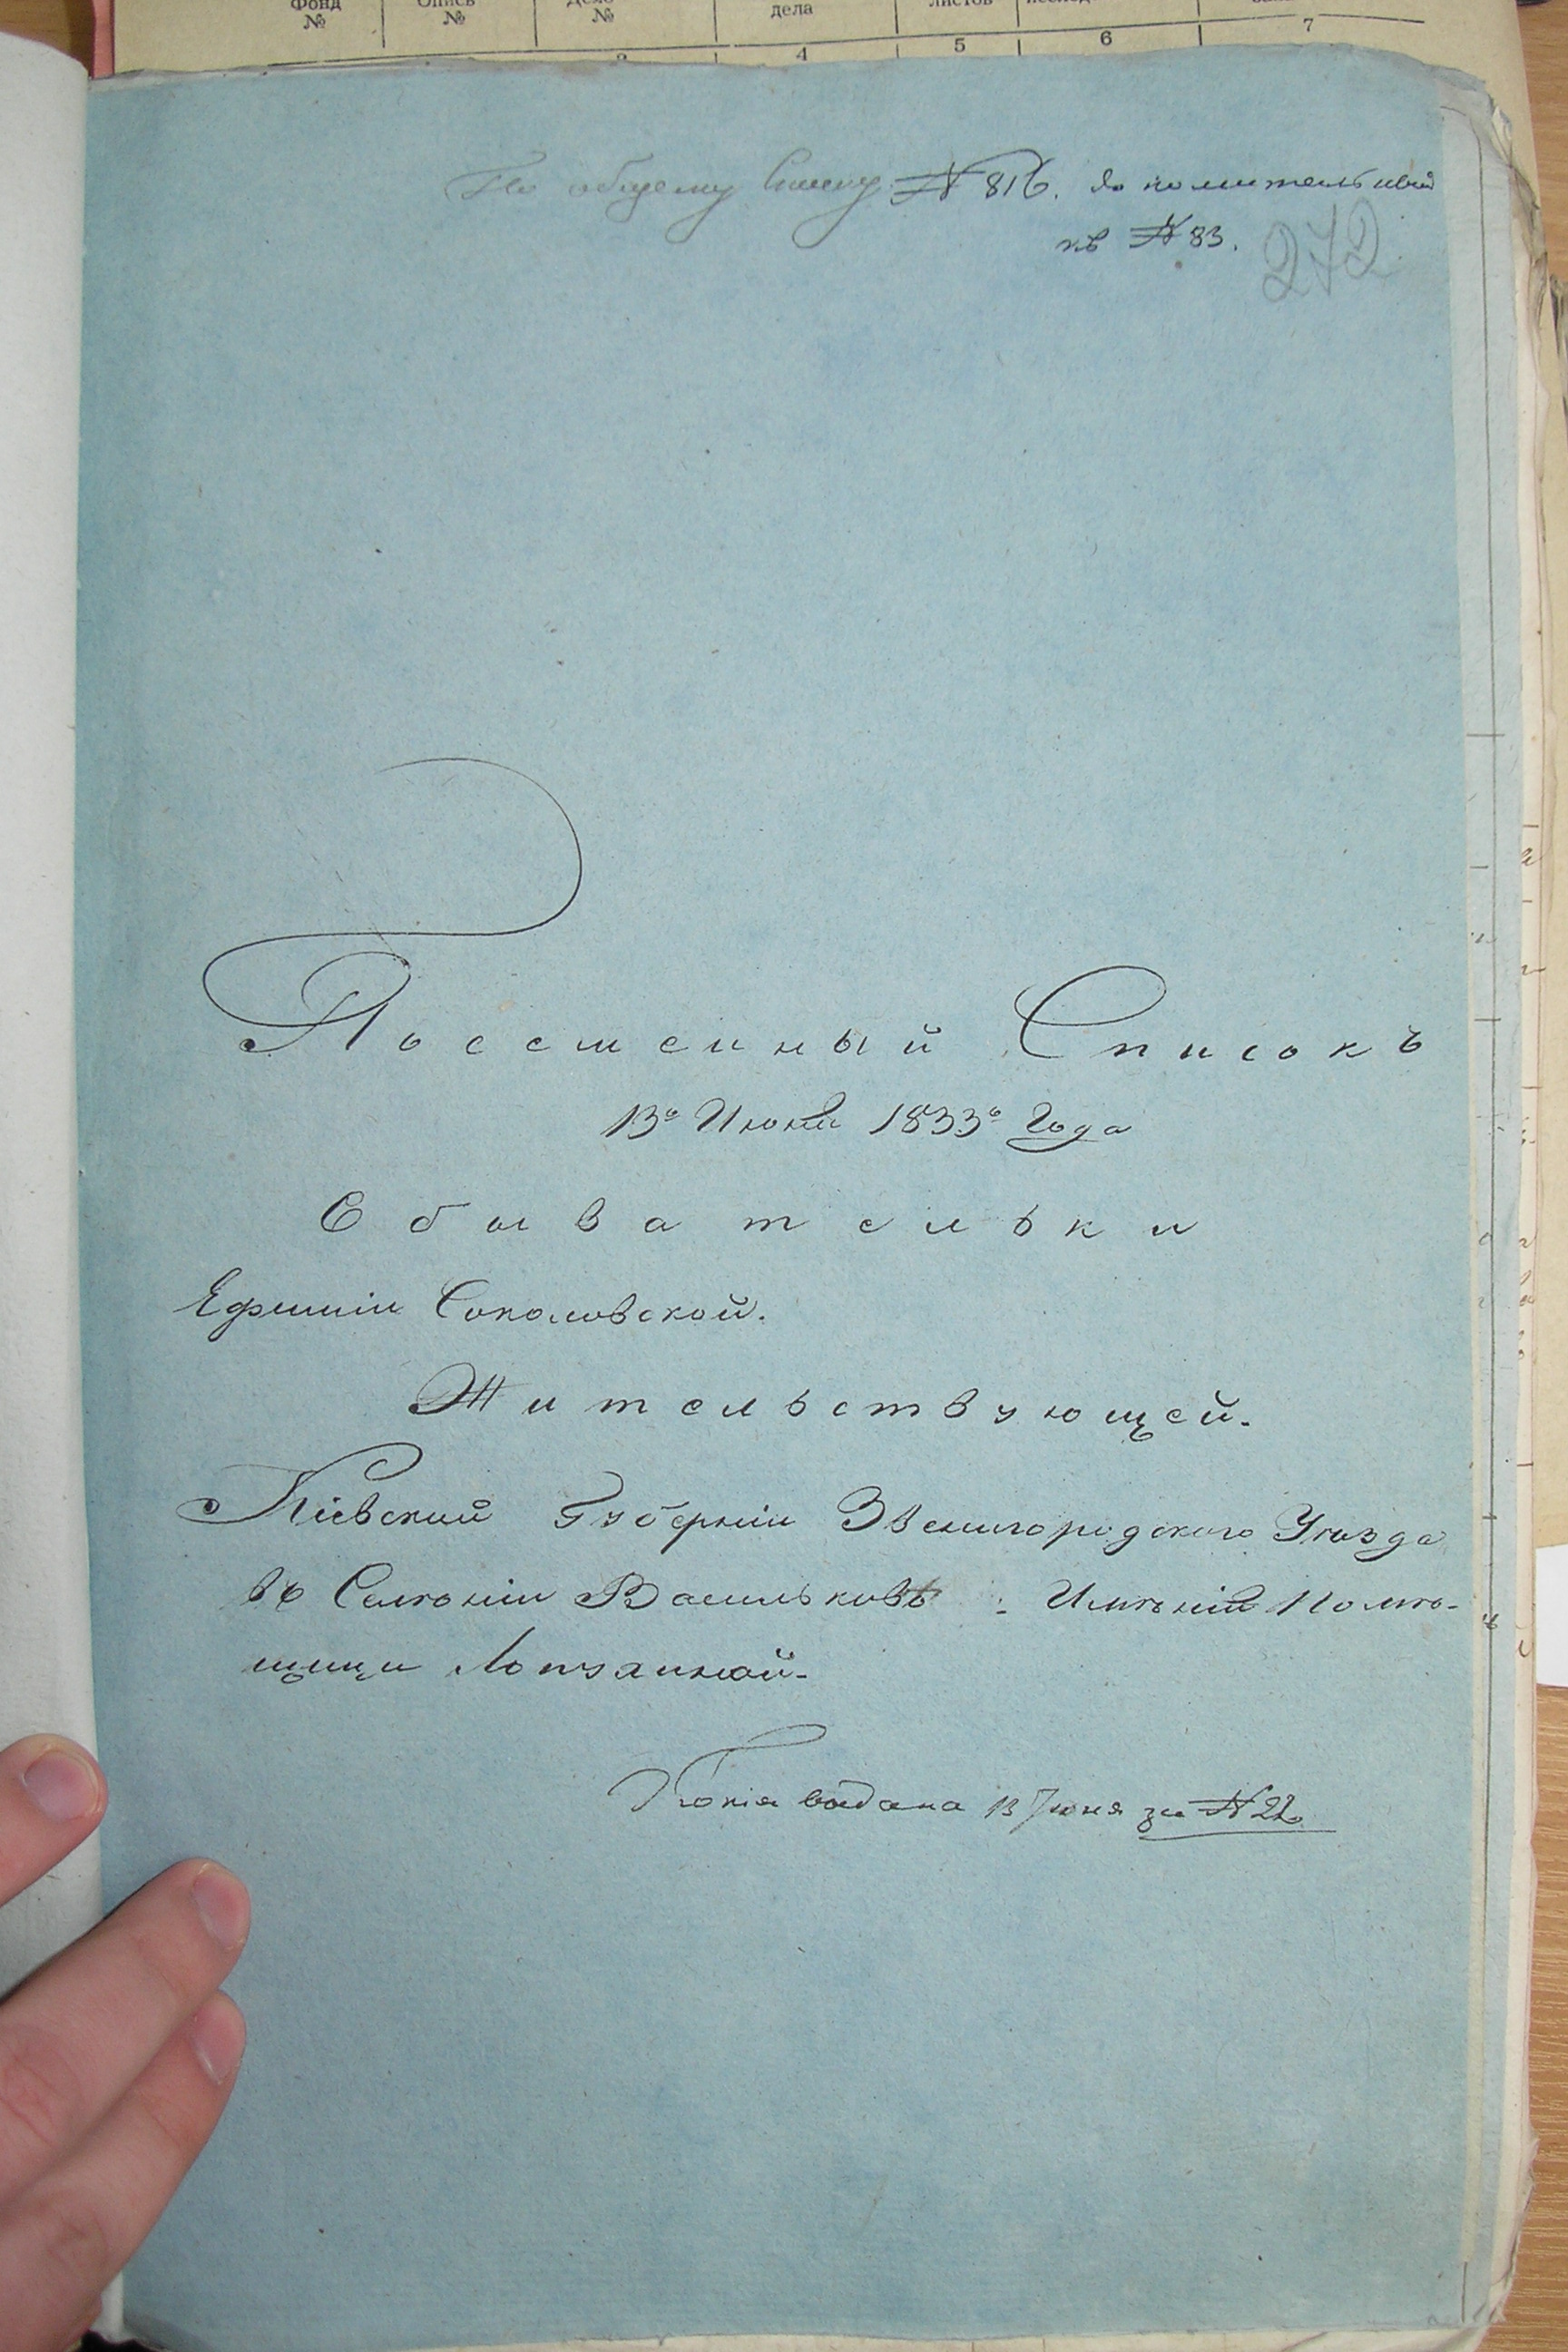 Фонд № Опись № Дело № дела листов
3 4 5 6 7
По общему списку № 816. Дополнительный
къ № 83.
272
Посемейный Списокъ
13º Июня 1833º Года
Обывательки
Ефиміи Соколовской.
Жительствующей.
Кіевский Губерніи Звенигородского Уѣзда
въ Селѣніи Васильковѣ: Имѣній Помѣ-
щици Лопухиной.
Копія выдана 13 Іюня за № 22